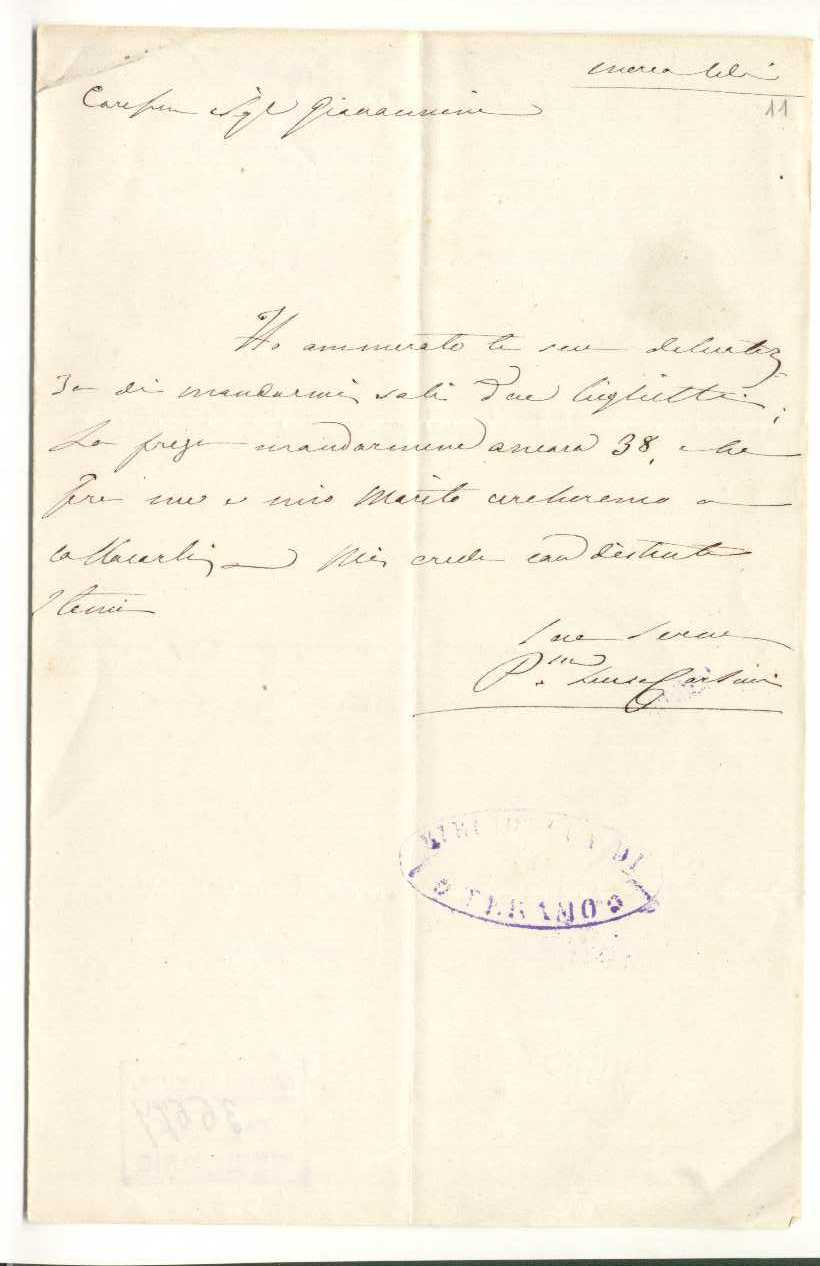 11
Giovannina
Ho ammirato la sua delicatez
za di mandarmi soli due biglietti;
La prego mandarmene ancora 38, che
fra me e mio marito cercheremo a
collocarli, Mi creda con distinta
stima
Sua Serva
Luisa
DI
TERAMO